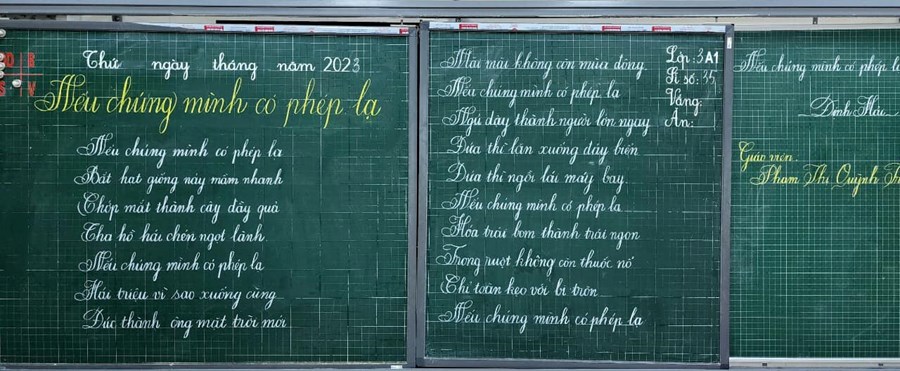 D B
S V
Thứ ngày tháng năm 2023
Nếu chúng mình có phép lạ
Nếu chúng mình có phép lạ
Bắt hạt giống nảy mầm nhanh
Chớp mắt thành cây đầy quả
Tha hồ hái chén ngọt lành
Nếu chúng mình có phép lạ
Hái triệu vì sao xuống cùng
Đúc thành ông mặt trời mới
Mãi mãi không còn mùa đông
Nếu chúng mình có phép lạ
Ngủ dậy thành người lớn ngay
Đứa thì lặn xuống đáy biển
Đứa thì ngồi lái máy bay
Nếu chúng mình có phép lạ
Hóa trái bom thành trái ngon
Trong ruột không còn thuốc nổ
Chỉ toàn kẹo với bi tròn
Nếu chúng mình có phép lạ
Lớp: 3A1
Sĩ số: 35
Vắng:
Ăn:
Nếu chúng mình có phép
Định Hải
Giáo viên
Phạm Thị Quỳnh